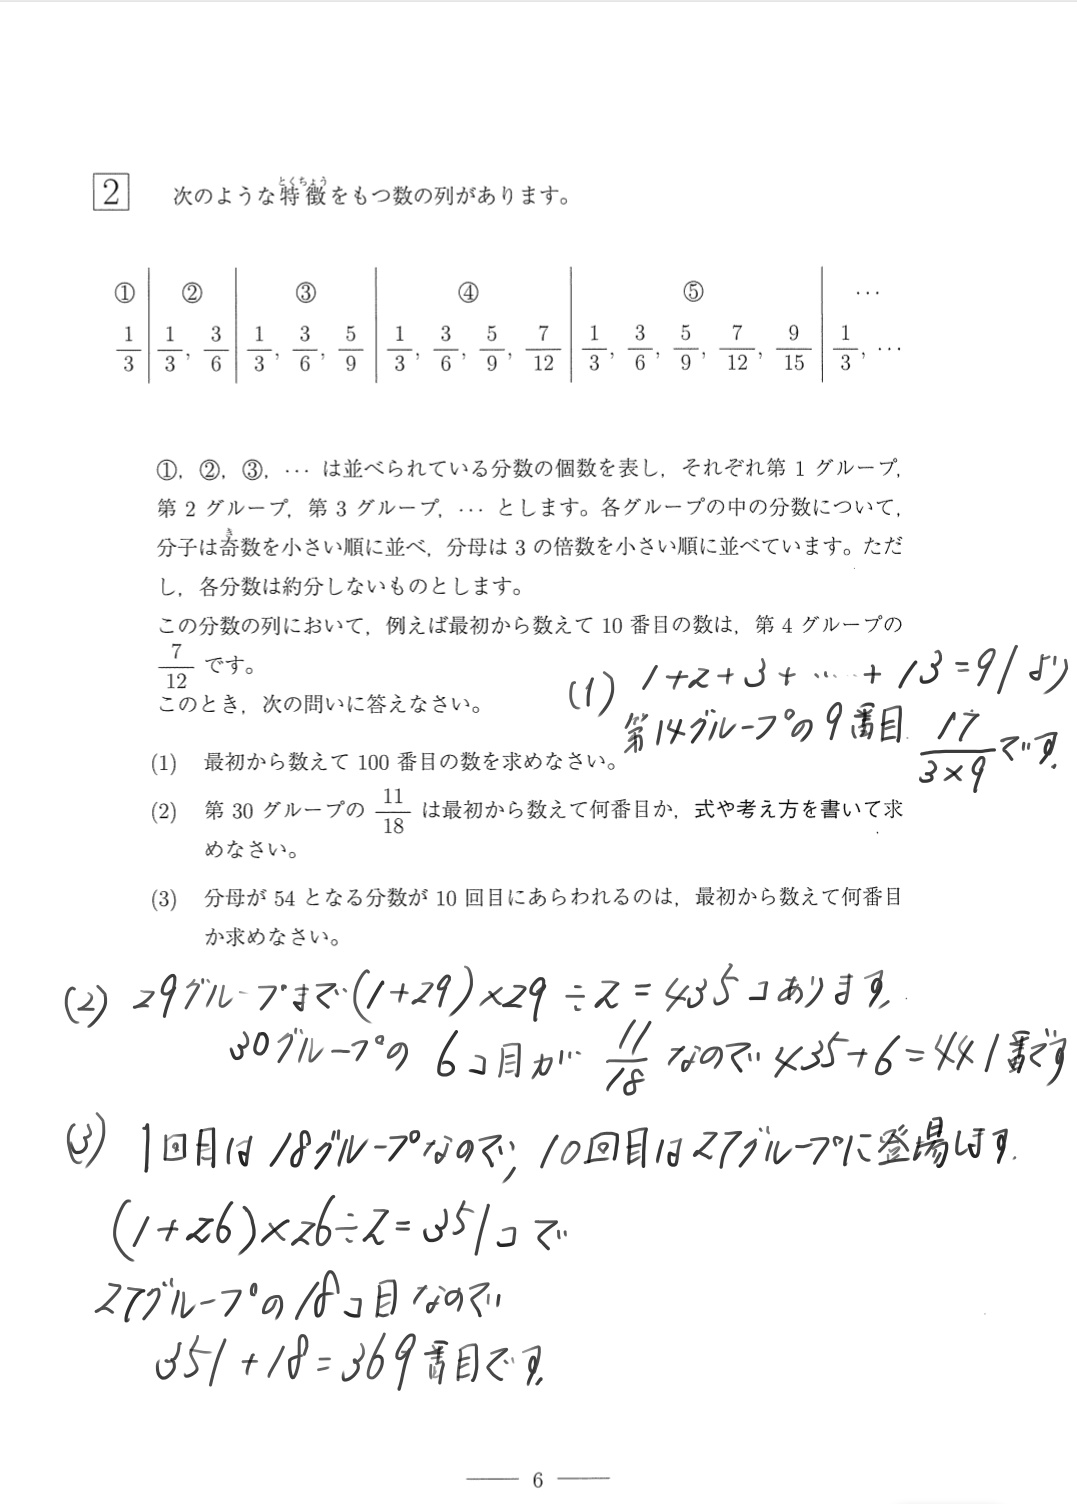 2 次のような特徴をもつ数の列があります。
とくちょう
① ② ③ ④ ⑤ …
1/3 | 1/3, 3/6 | 1/3, 3/6, 5/9 | 1/3, 3/6, 5/9, 7/12 | 1/3, 3/6, 5/9, 7/12, 9/15 | 1/3, …
①，②，③，… は並べられている分数の個数を表し，それぞれ第 1 グループ，
第 2 グループ，第 3 グループ，… とします。各グループの中の分数について，
き
分子は奇数を小さい順に並べ，分母は 3 の倍数を小さい順に並べています。ただ
し，各分数は約分しないものとします。
この分数の列において，例えば最初から数えて 10 番目の数は，第 4 グループの
7/12 です。
このとき，次の問いに答えなさい。
(1) 1+2+3+…+13=91より
第14グループの9番目 17/3×9です.
(1) 最初から数えて 100 番目の数を求めなさい。
(2) 第 30 グループの 11/18 は最初から数えて何番目か，式や考え方を書いて求
めなさい。
(3) 分母が 54 となる分数が 10 回目にあらわれるのは，最初から数えて何番目
か求めなさい。
(2) 29グループまで(1+29)×29÷2=435コあります.
30グループの 6コ目が 11/18 なので 435+6=441番です
(3) 1回目は18グループなので, 10回目は27グループに登場します.
(1+26)×26÷2=351コで
27グループの18コ目なので
351+18=369番目です.
6